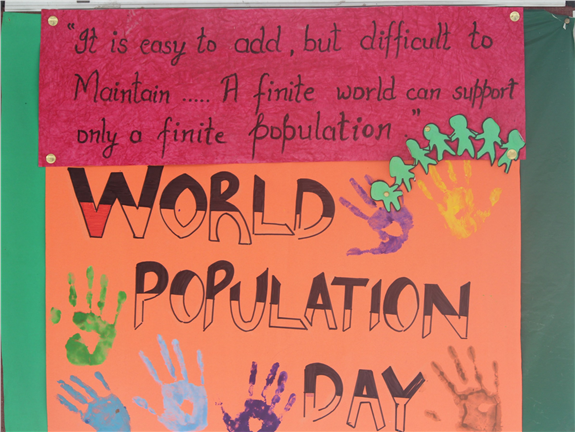 "It is easy to add, but difficult to
Maintain ..... A finite world can support
only a finite population."
WORLD
POPULATION
DAY